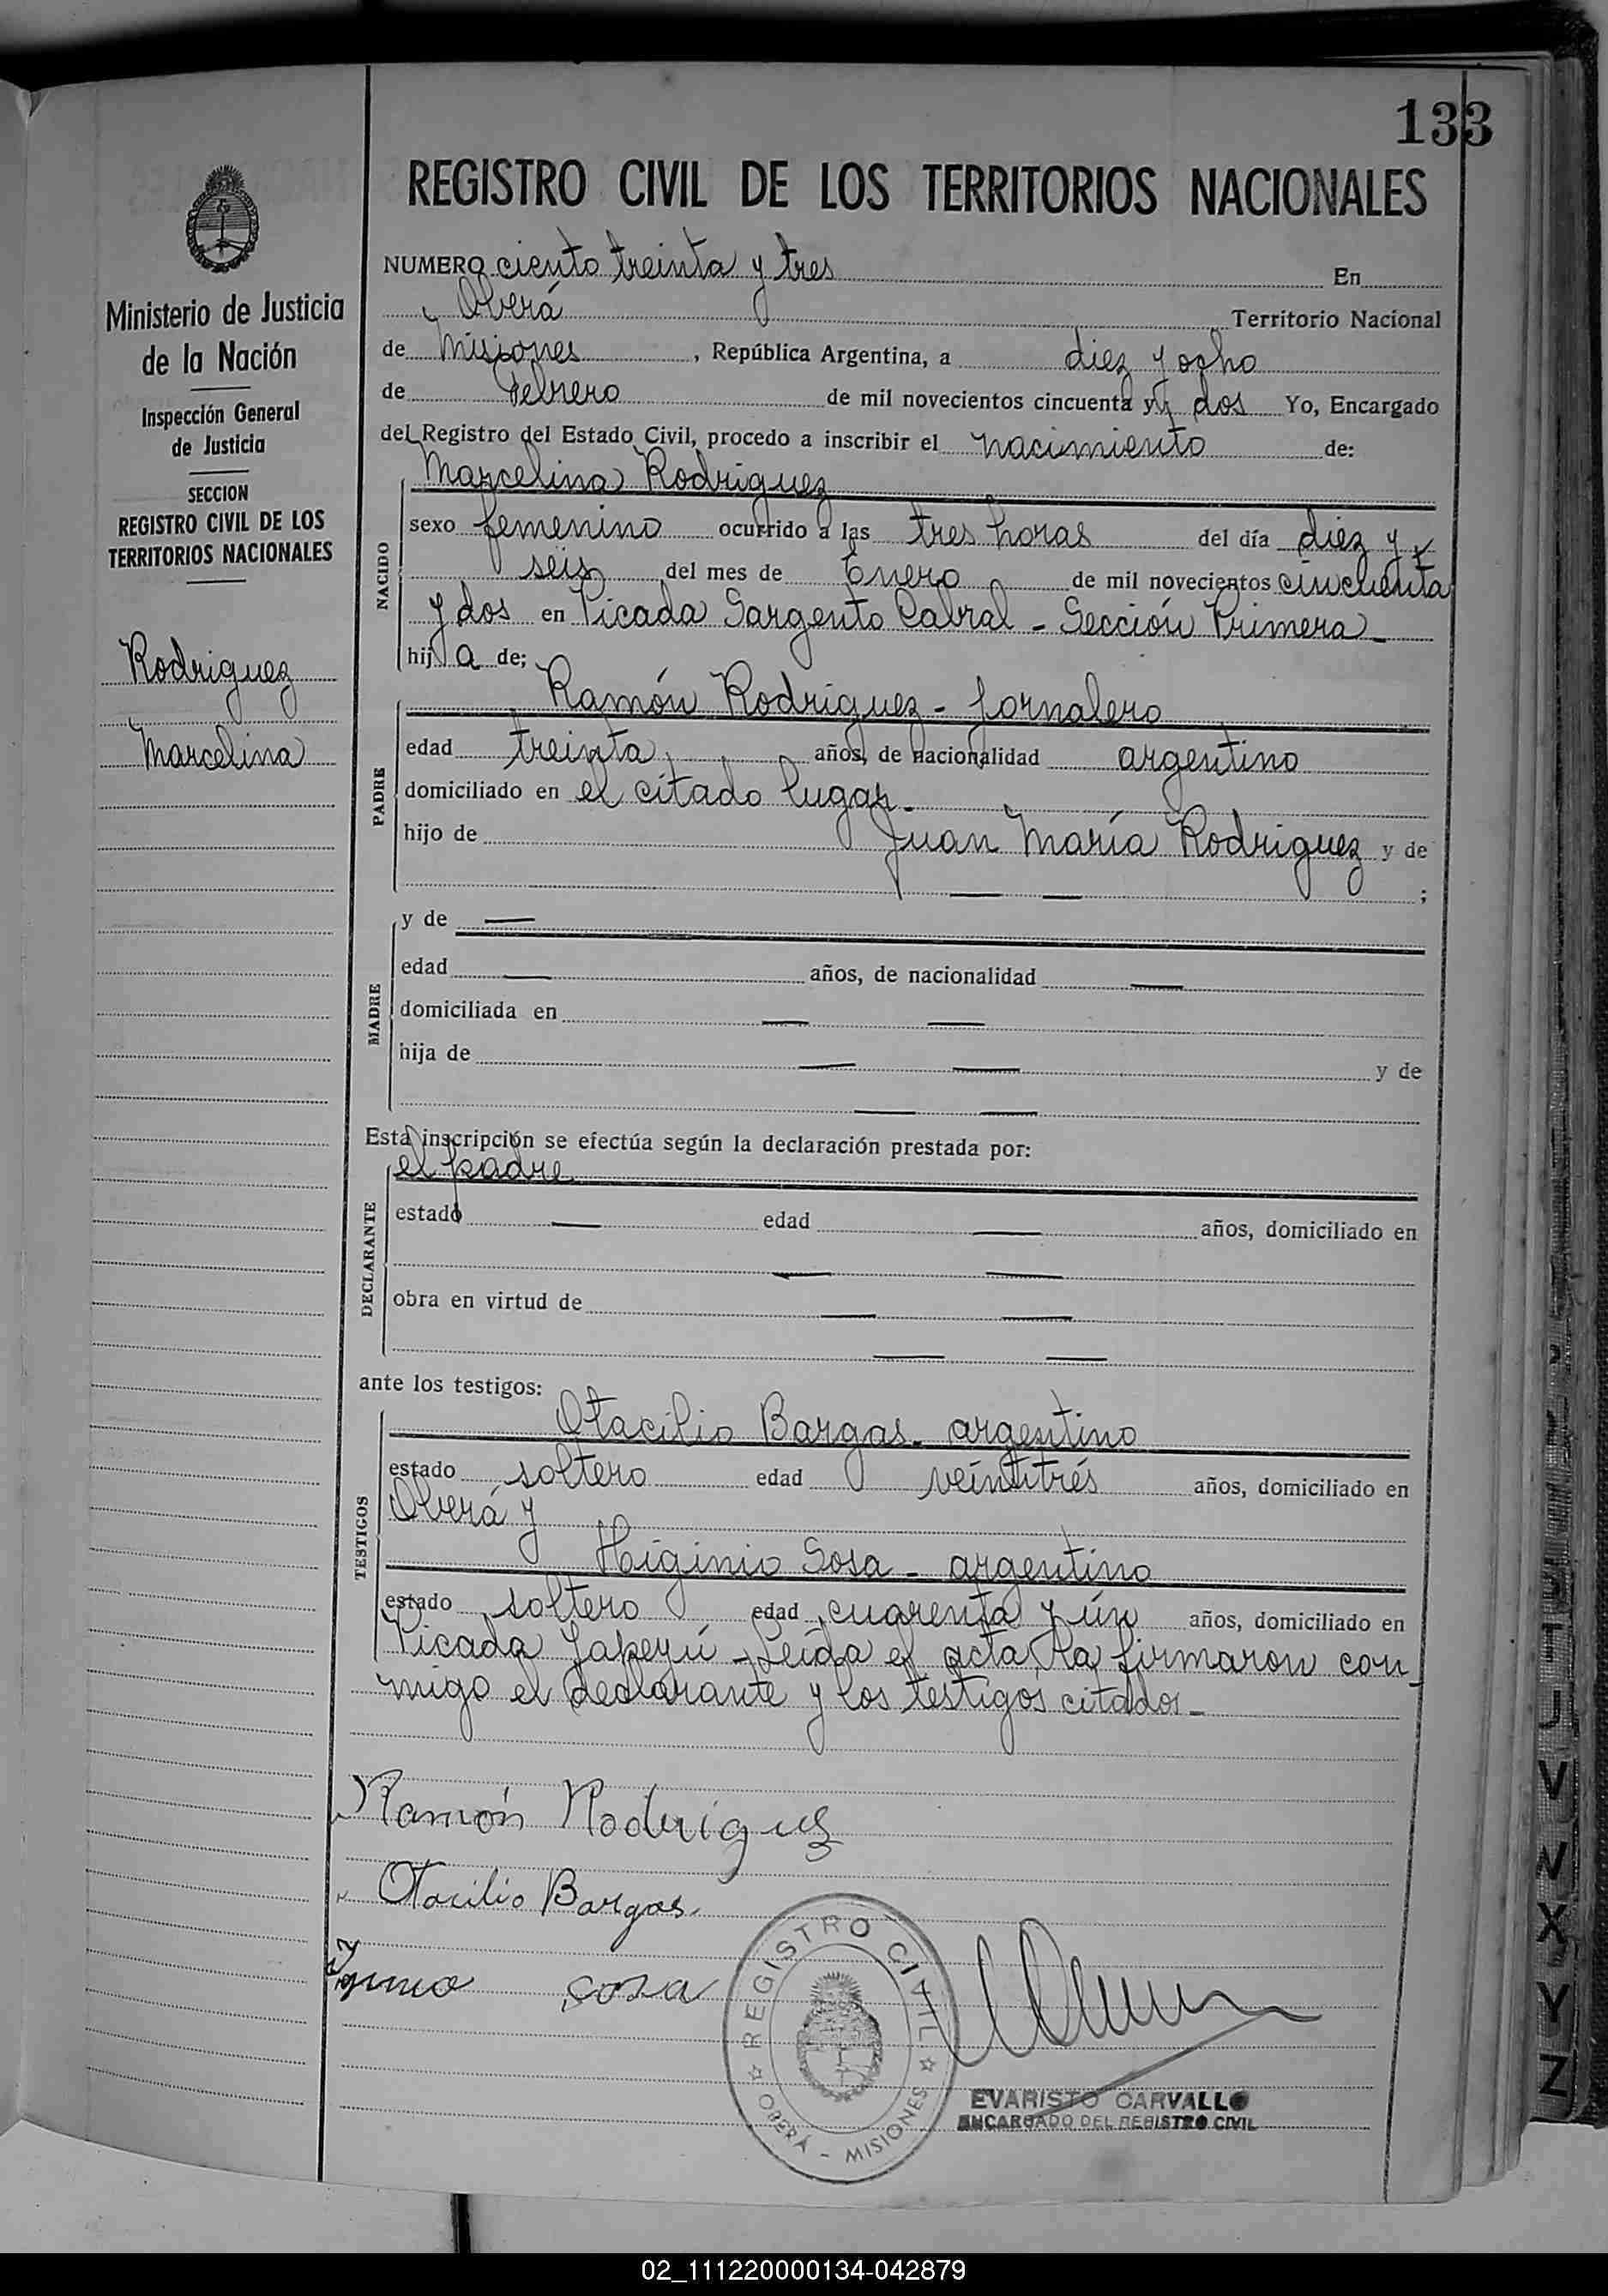 133
REGISTRO CIVIL DE LOS TERRITORIOS NACIONALES
Ministerio de Justicia
de la Nación
Inspección General
de Justicia
SECCION
REGISTRO CIVIL DE LOS
TERRITORIOS NACIONALES
Rodriguez
Marcelina
NUMERO ciento treinta y tres En
Oberá Territorio Nacional
de Misiones, República Argentina, a diez y ocho
de Febrero de mil novecientos cincuenta y y dos Yo, Encargado
del Registro del Estado Civil, procedo a inscribir el nacimiento de:
Marcelina Rodriguez
NACIDO
sexo femenino ocurrido a las tres horas del día diez y
seis del mes de Enero de mil novecientos cincuenta
y dos en Picada Sargento Cabral - Sección Primera -
hij a de;
Ramón Rodriguez - Jornalero
PADRE
edad treinta años, de nacionalidad argentino
domiciliado en el citado lugar.
hijo de Juan María Rodriguez y de
— — ;
MADRE
y de —
edad — años, de nacionalidad —
domiciliada en — —
hija de — — y de
— —
Esta inscripción se efectúa según la declaración prestada por:
el padre
DECLARANTE
estado — edad — años, domiciliado en
— —
obra en virtud de — —
— —
ante los testigos:
TESTIGOS
Otacilio Bargas - argentino
estado soltero edad veintitrés años, domiciliado en
Oberá y
Higinio Sosa - argentino
estado soltero edad cuarenta y ún años, domiciliado en
Picada Yapeyú - Leída el acta la firmaron con
migo el declarante y los testigos citados -
Ramón Rodriguez
Otacilio Bargas.
sosa
REGISTRO CIVIL
OBERÁ - MISIONES
EVARISTO CARVALLO
ENCARGADO DEL REGISTRO CIVIL
T
U
V
W
X
Y
Z
02_111220000134-042879